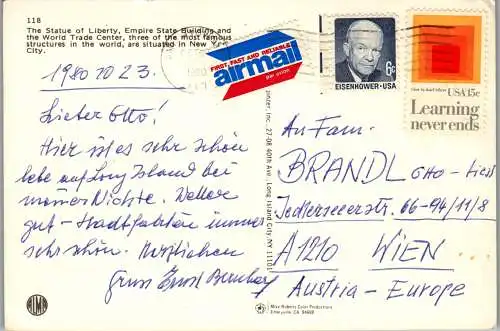 118
The Statue of Liberty, Empire State Building and
the World Trade Center, three of the most famous
structures in the world, are situated in New York
City.
1980 10 23.
Lieber Otto!
Hier ist es sehr schön
lebe auf Long Island bei
meiner Nichte. Wetter
gut - Stadtfahrten immer
sehr schön. Herzlichen
Gruss Ernst Bernhard
FIRST, FAST AND RELIABLE
airmail
par avion
6c
EISENHOWER · USA
USA 15c
Learning
never ends
27-08 40th Ave., Long Island City, N.Y. 11101
An Fam.
BRANDL Otto-Liesl
Jedlerseerstr. 66-94/11/8
A1210 WIEN
Austria - Europe
Mike Roberts Color Productions
Emeryville, CA 94608